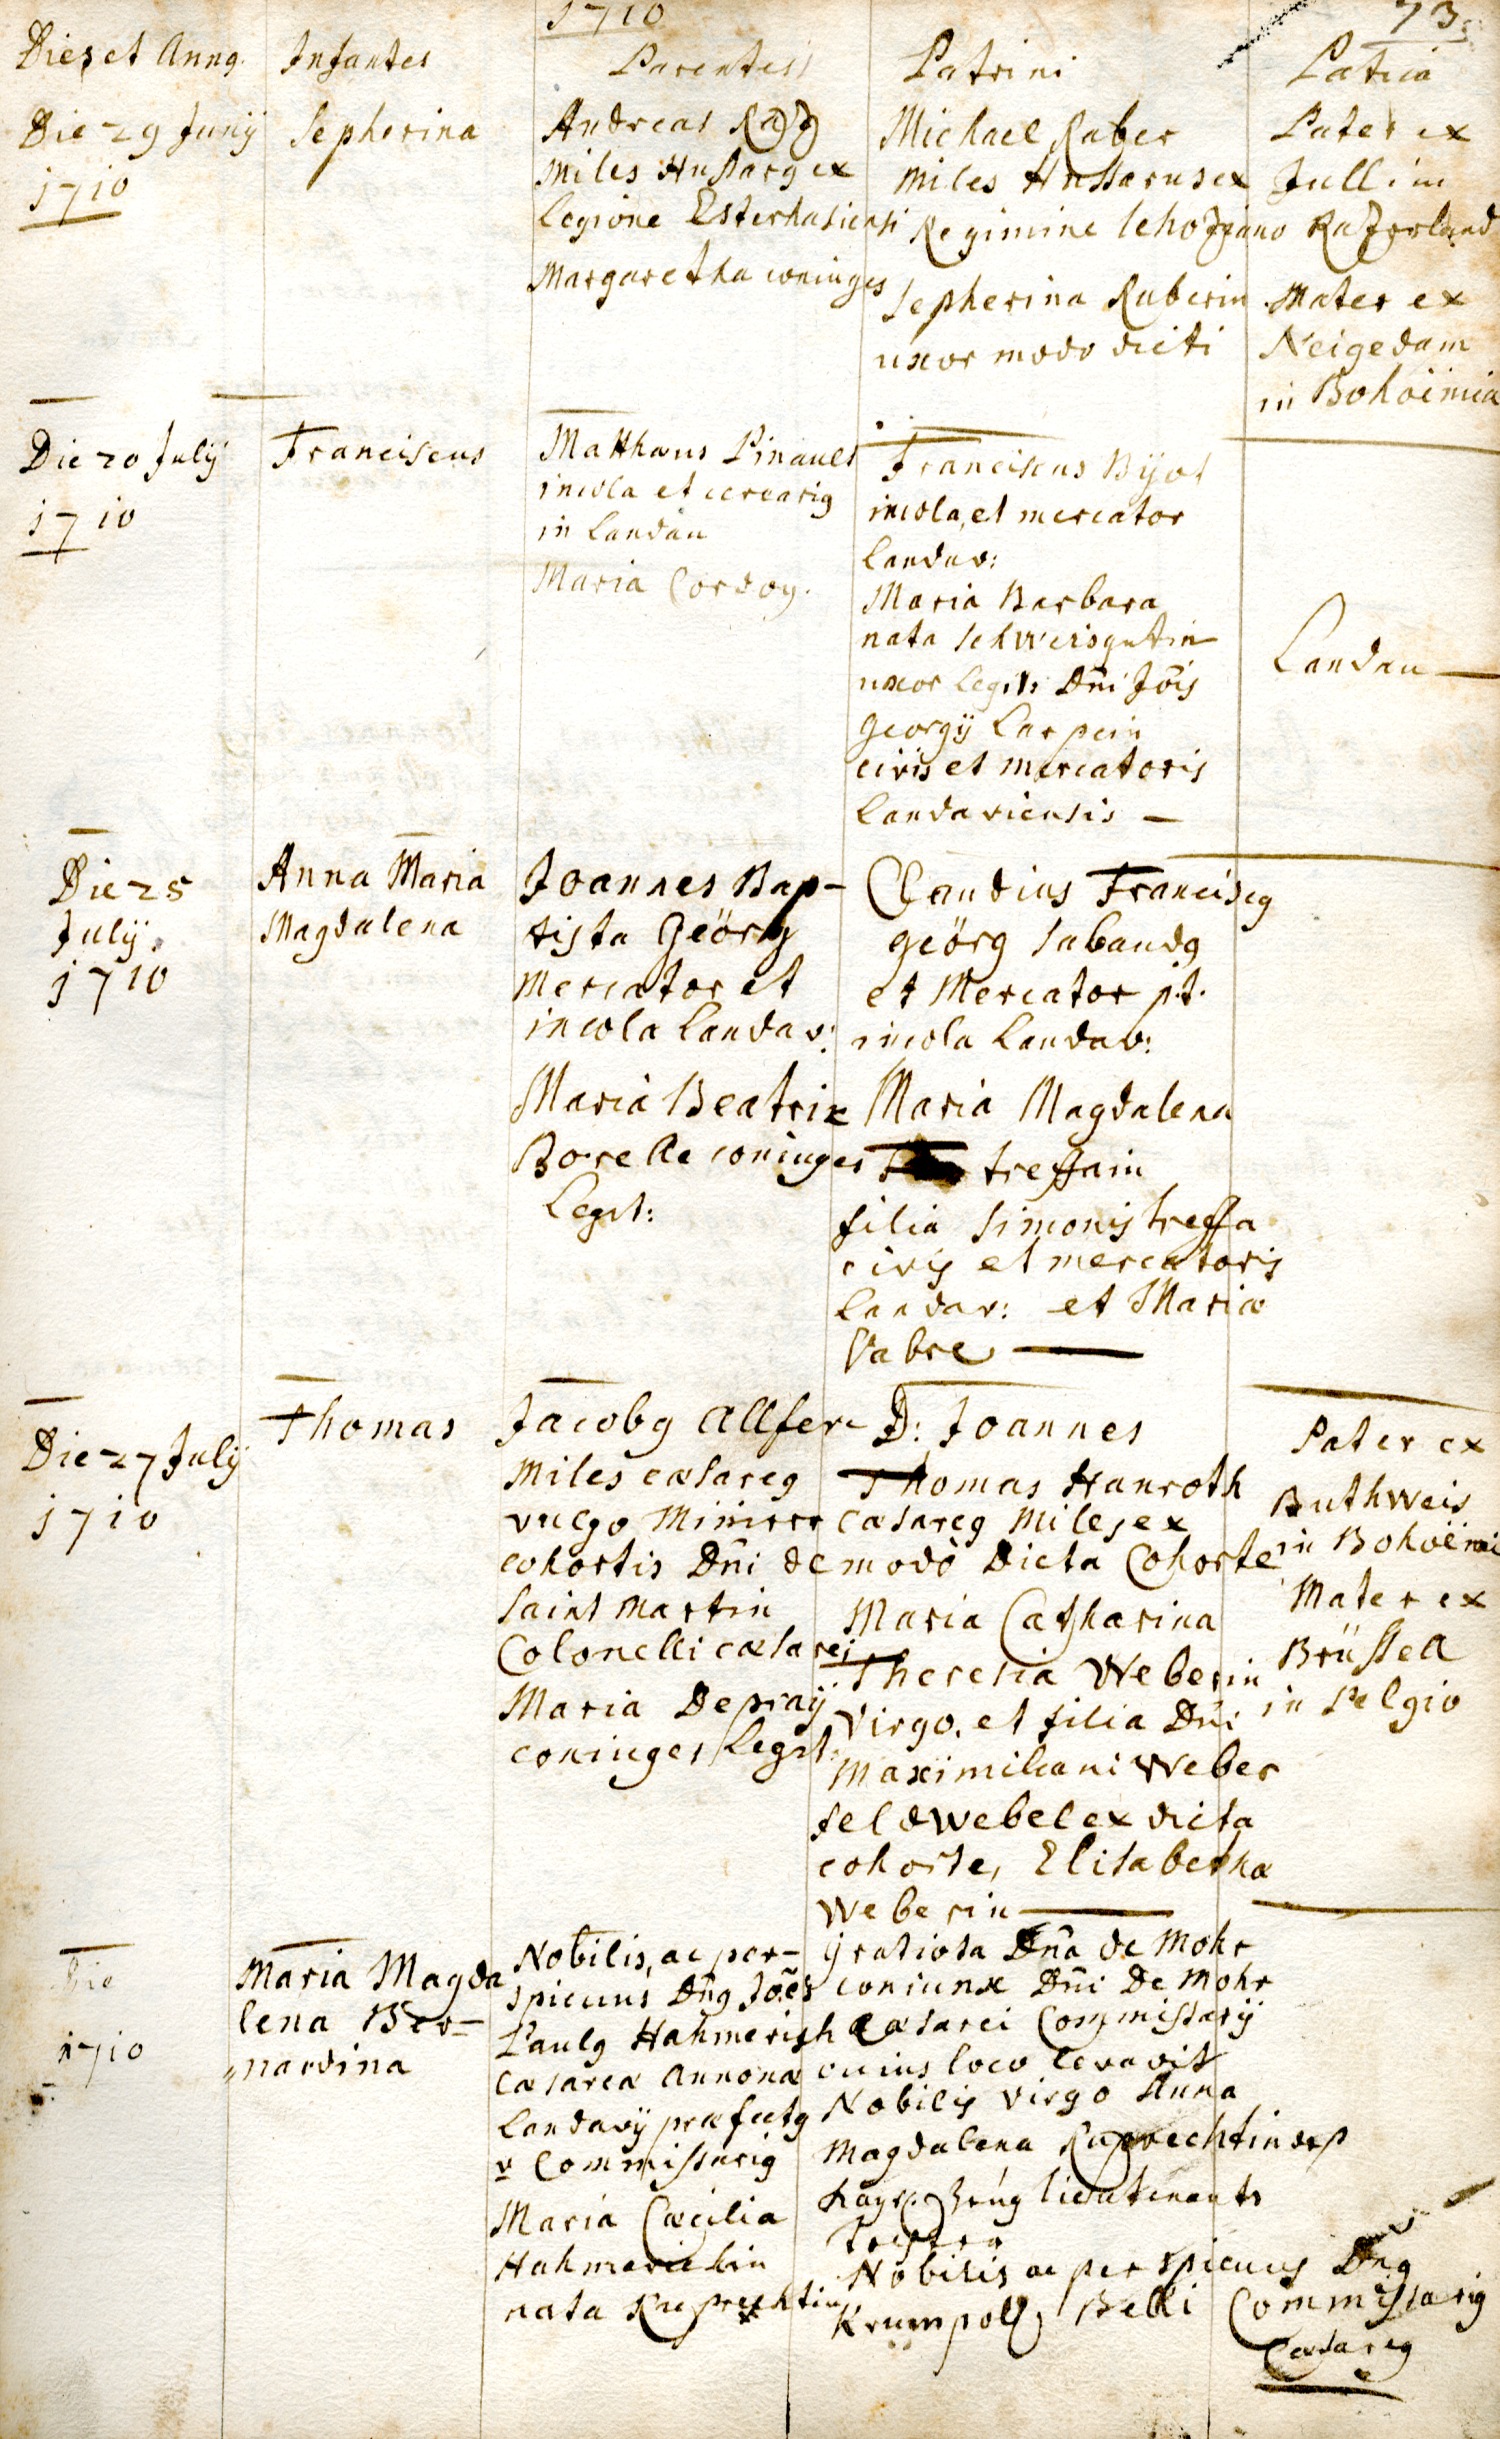 1710
73.
Dies et Annq. Infantes Parentes Patrini Patria
Die 29 Junij
1710
Sepherina
Andreas
Miles Hussarq ex
Legione Esterhasiensi
Margaretha coniuges
Michael Raber
Miles Hussarus ex
Regimine lehozziano
Sepherina Raberin
uxor modo dicti
Pater ex
Jull im
Razerland
Mater ex
Neigedam
in Bohoëmia
Die 20 Julij
1710
Franciscus
Matthæus Pinaues
incola et cerearig
in Landau
Maria Cordoy.
Franciscus Bijot
incola, et mercator
Landav:
Maria Barbara
nata Schweisgutin
uxor Legit: Dni Jois
Georgij Larpein
civis et mercatoris
Landaviensis —
Landau —
Die 25
Julij.
1710
Anna Maria
Magdalena
Joannes Bap-
tista Geörg
Mercator et
incola Landav:
Maria Beatrix
Borelle coniuges
Legit:
Claudius Francisq
geörg Sabaudq
et Mercator p.t.
incola Landav:
Maria Magdalena
treffain
filia Simonis treffa
civis et mercatoris
Landav: et Mariæ
Vabre —
Die 27 Julij
1710
Thomas
Jacobq Allfer
Miles cæsareq
vulgo Minierer
cohortis Dni de
Saint Martin
Colonelli cæsarei
Maria Depraÿ
coniuges Legit:
D: Joannes
Thomas Hanroth
Cæsareq Miles ex
modò Dicta Cohorte
Maria Catharina
Theresia Weberin
Virgo, et filia Dni
Maximiliani Weber
feldwebel ex dicta
cohorte, Elisabetha
Weberin —
Pater ex
Buthweis
in Bohoëmia
Mater ex
Brüssell
in Belgio
Die
1710
Maria Magda
lena Ber-
nardina
Nobilis, ac per-
spicuus Dnq Joes
Paulq Hahmerich
Cæsareæ Annonæ
Landavij præfectq
v Commissariq
Maria Cæcilia
Hahmerichin
nata Ruprechtin
Gratiosa Dna de Mohr
coniunx Dni De Mohr
Cæsarei Commissarij
cuius loco levavit
Nobilis virgo Anna
Magdalena Ruprechtin
Lieutenants
Nobilis ac perspicuus Dnq
Krumpolz Belli Commissariq
Cæsareq